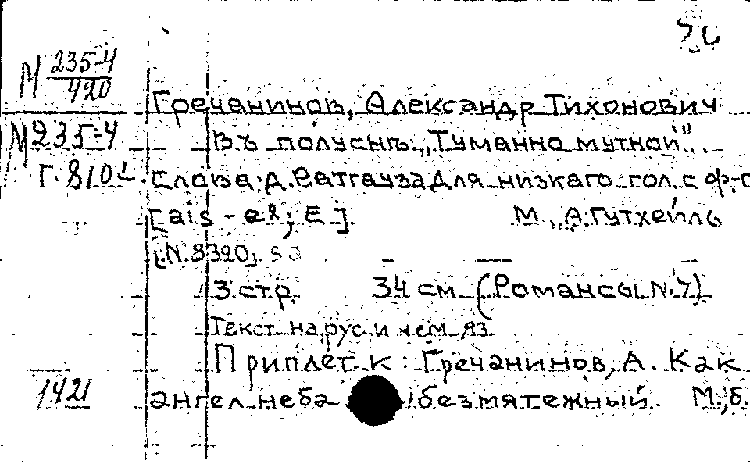 М 235-4
420
Гречанинов, Александр Тихонович
М235-4
Въ полусне „Туманно мутной".
Г. 810
Слова Д. Ратгауза Для низкаго гол. с ф-п
[ais - e2; E] М., А. Гутхейль
[N. 8390].
3 стр. 34 см. (Романсы N.7)
Текст на рус. и нем. яз.
Приплет к: Гречанинов, А. Как
1421
ангел неба безмятежный. М., б.